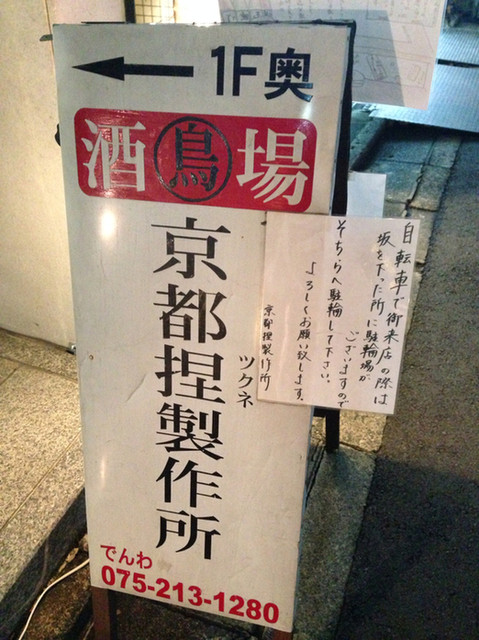 1F奥
酒鳥場
京都捏製作所
ツクネ
でんわ
075-213-1280
自転車で御来店の際は
坂を下った所に駐輪場が
ございますので
そちらへ駐輪して下さい。
よろしくお願い致します。
京都捏製作所